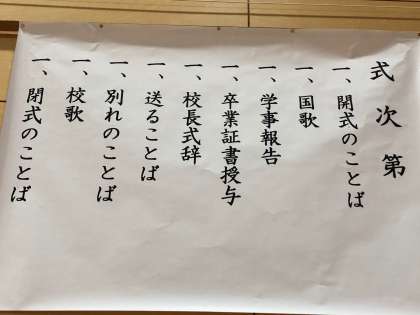 式次第
一、開式のことば
一、国歌
一、学事報告
一、卒業証書授与
一、校長式辞
一、送ることば
一、別れのことば
一、校歌
一、閉式のことば